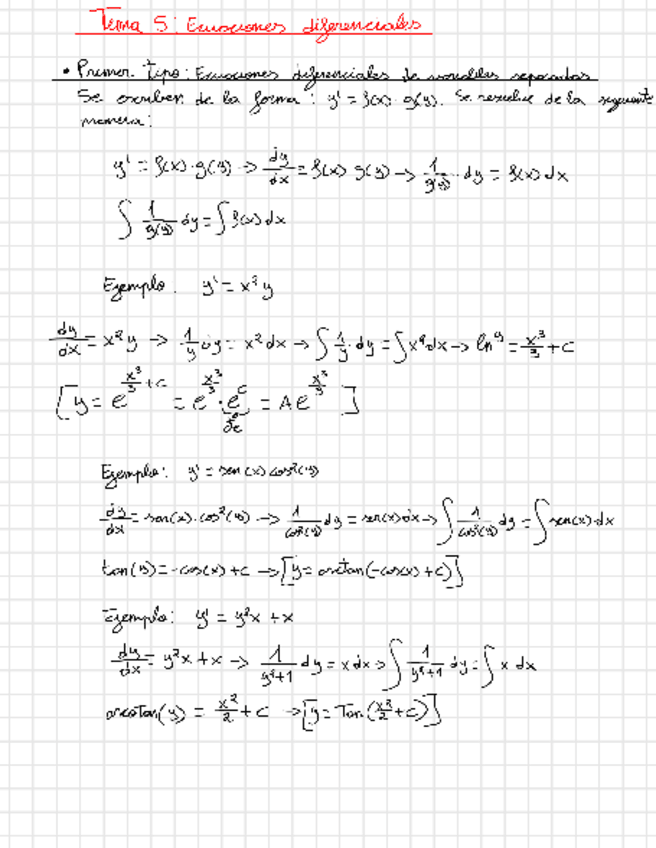 Tema 5: Ecuaciones diferenciales
• Primer tipo: Ecuaciones diferenciales de variables separadas
Se escriben de la forma: y' = f(x)·g(y). Se resuelve de la siguiente
manera:
y' = f(x)·g(y) → dy/dx = f(x)·g(y) → 1/g(y)·dy = f(x)dx
∫ 1/g(y) dy = ∫ f(x)dx
Ejemplo: y' = x²y
dy/dx = x²y → 1/y dy = x²dx → ∫ 1/y·dy = ∫ x²dx → ln y = x³/3 + C
[y = e^(x³/3 + C) = e^(x³/3)·e^C = Ae^(x³/3)]
Ejemplo: y' = sen(x)cos²(y)
dy/dx = sen(x)·cos²(y) → 1/cos²(y) dy = sen(x)dx → ∫ 1/cos²(y) dy = ∫ sen(x)·dx
tan(y) = -cos(x) + C → [y = arctan(-cos(x) + C)]
Ejemplo: y' = y²x + x
dy/dx = y²x + x → 1/(y²+1) dy = x dx → ∫ 1/(y²+1) dy = ∫ x dx
arcotan(y) = x²/2 + C → [y = Tan(x²/2 + C)]